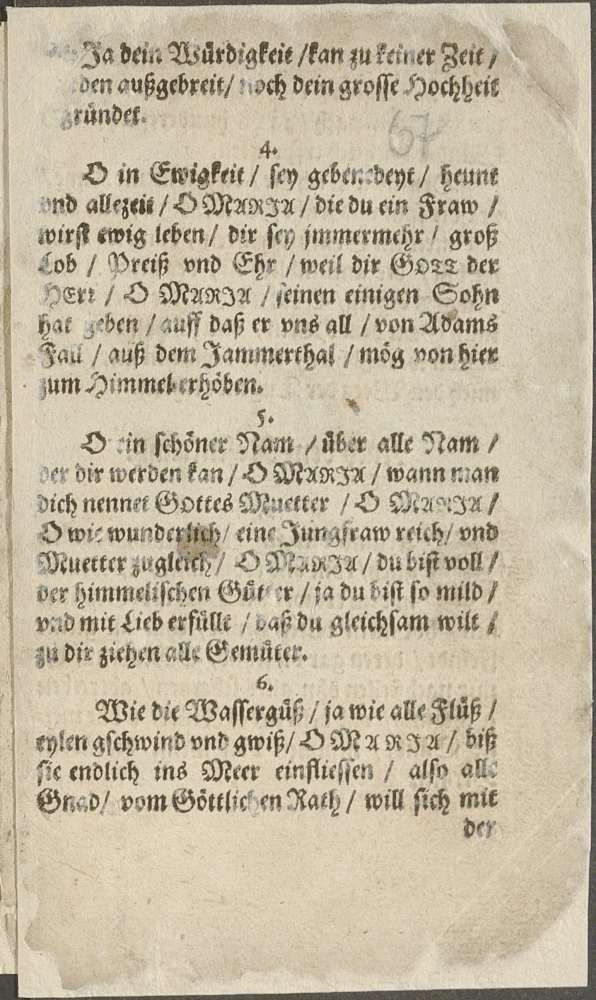 Ja dein Würdigkeit / kan zu keiner Zeit /
den außgebreit / noch dein grosse Hochheit
gründet.
67
4.
O in Ewigkeit / sey gebenedeyt / heunt
vnd allezeit / O MARJA / die du ein Fraw /
wirst ewig leben / dir sey jmmermehr / groß
Lob / Preiß vnd Ehr / weil dir GOTT der
HErr / O MARJA / seinen einigen Sohn
hat geben / auff daß er vns all / von Adams
Fall / auß dem Jammerthal / mög von hier
zum Himmel erhöben.
5.
O ein schöner Nam / über alle Nam /
der dir werden kan / O MARJA / wann man
dich nennet GOttes Muetter / O MARJA /
O wie wunderlich / eine Jungfraw reich / vnd
Muetter zugleich / O MARJA / du bist voll /
der himmelischen Güter / ja du bist so mild /
vnd mit Lieb erfüllt / daß du gleichsam wilt /
zu dir ziehen alle Gemüter.
6.
Wie die Wassergüß / ja wie alle Flüß /
eylen gschwind vnd gwiß / O MARJA / biß
sie endlich ins Meer einfliessen / also alle
Gnad / vom Göttlichen Rath / will sich mit
der